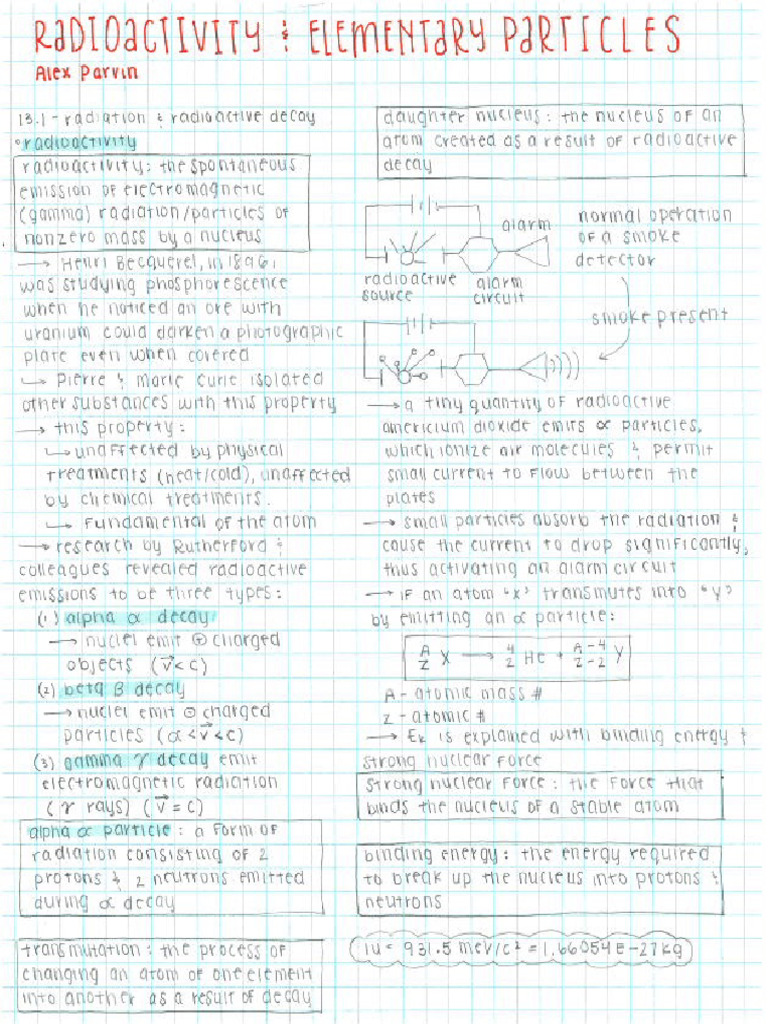 RADIOACTIVITY & ELEMENTARY PARTICLES
Alex Parvin
13.1 - radiation & radioactive decay
• radioactivity
radioactivity: the spontaneous
emission of electromagnetic
(gamma) radiation/particles of
nonzero mass by a nucleus
→ Henri Becquerel, in 1896,
was studying phosphorescence
when he noticed an ore with
uranium could darken a photographic
plate even when covered
↳ Pierre & Marie Curie isolated
other substances with this property
→ this property:
↳ unaffected by physical
treatments (heat/cold), unaffected
by chemical treatments.
↳ fundamental of the atom
→ research by Rutherford &
colleagues revealed radioactive
emissions to be three types:
(1) alpha α decay
→ nuclei emit ⊕ charged
objects (v⃗ < c)
(2) beta β decay
→ nuclei emit ⊖ charged
particles (α < v⃗ < c)
(3) gamma γ decay emit
electromagnetic radiation
(γ rays) (v⃗ = c)
alpha α particle: a form of
radiation consisting of 2
protons & 2 neutrons emitted
during α decay
transmutation: the process of
changing an atom of one element
into another as a result of decay
daughter nucleus: the nucleus of an
atom created as a result of radioactive
decay
alarm
normal operation
of a smoke
detector
radioactive
source
alarm
circuit
smoke present
→ a tiny quantity of radioactive
americium dioxide emits α particles,
which ionize air molecules & permit
small current to flow between the
plates
→ small particles absorb the radiation &
cause the current to drop significantly,
thus activating an alarm circuit
→ if an atom "x" transmutes into "y"
by emitting an α particle:
A/Z X → 4/2 He + A-4/Z-2 Y
A - atomic mass #
Z - atomic #
→ Ek is explained with binding energy &
strong nuclear force
strong nuclear force: the force that
binds the nucleus of a stable atom
binding energy: the energy required
to break up the nucleus into protons &
neutrons
1u = 931.5 MeV/c² = 1.66054E-27kg